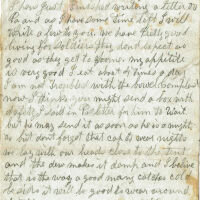 I have just finished writing a letter to
Pa and as I have some time left I will
write a few to you. We have pretty good
living for Soldiers they dont expect as
good as they get to Goomer. my appetite
is very good I eat about 4 times a day
I am not troubled with the bowel complaint
now I think you might send a box with
safety I said in Pa letter for him to wait
but he may send it as soon as he is a mind
to but dont forget that cap to wear nights
we lay with our heads close to the tent
and the dew makes it damp and I believe
that is the way a good many catches cold
besides it will be good to wear around